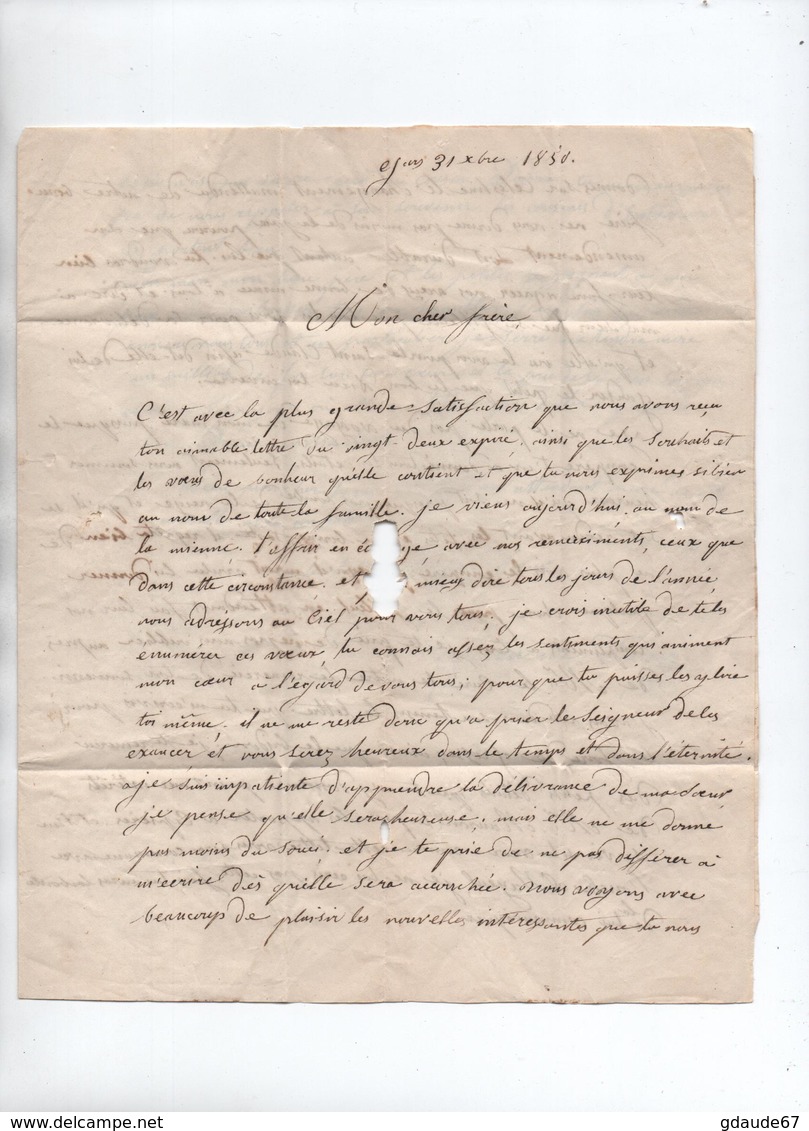 31 xbre 1850.
Mon cher frère,
C'est avec la plus grande satisfaction que nous avons reçu
ton aimable lettre du vingt-deux expiré, ainsi que les souhaits et
les vœux de bonheur qu'elle contient et que tu nous exprimes si bien
au nom de toute la famille. je viens aujourd'hui, au nom de
la mienne, t'offrir en avec nos remerciments, ceux que
dans cette circonstance, et mieux dire tous les jours de l'année
nous adressons au Ciel pour vous tous. je crois inutile de te les
enumérer ces vœux tu connais assez les sentiments qui animent
mon cœur a l'égard de vous tous; pour que tu puisses les y lire
toi même. il ne me reste donc qu'a prier le Seigneur de les
exaucer et vous serez heureux dans le temps et dans l'éternité.
je suis impatiente d'apprendre la délivrance de ma sœur
je pense qu'elle sera heureuse, mais elle ne me donne
pas moins du souci, et je te prie de ne pas différer à
m'écrire dès qu'elle sera accouchée. nous voyons avec
beaucoup de plaisir les nouvelles intéressantes que tu nous
gdaude67